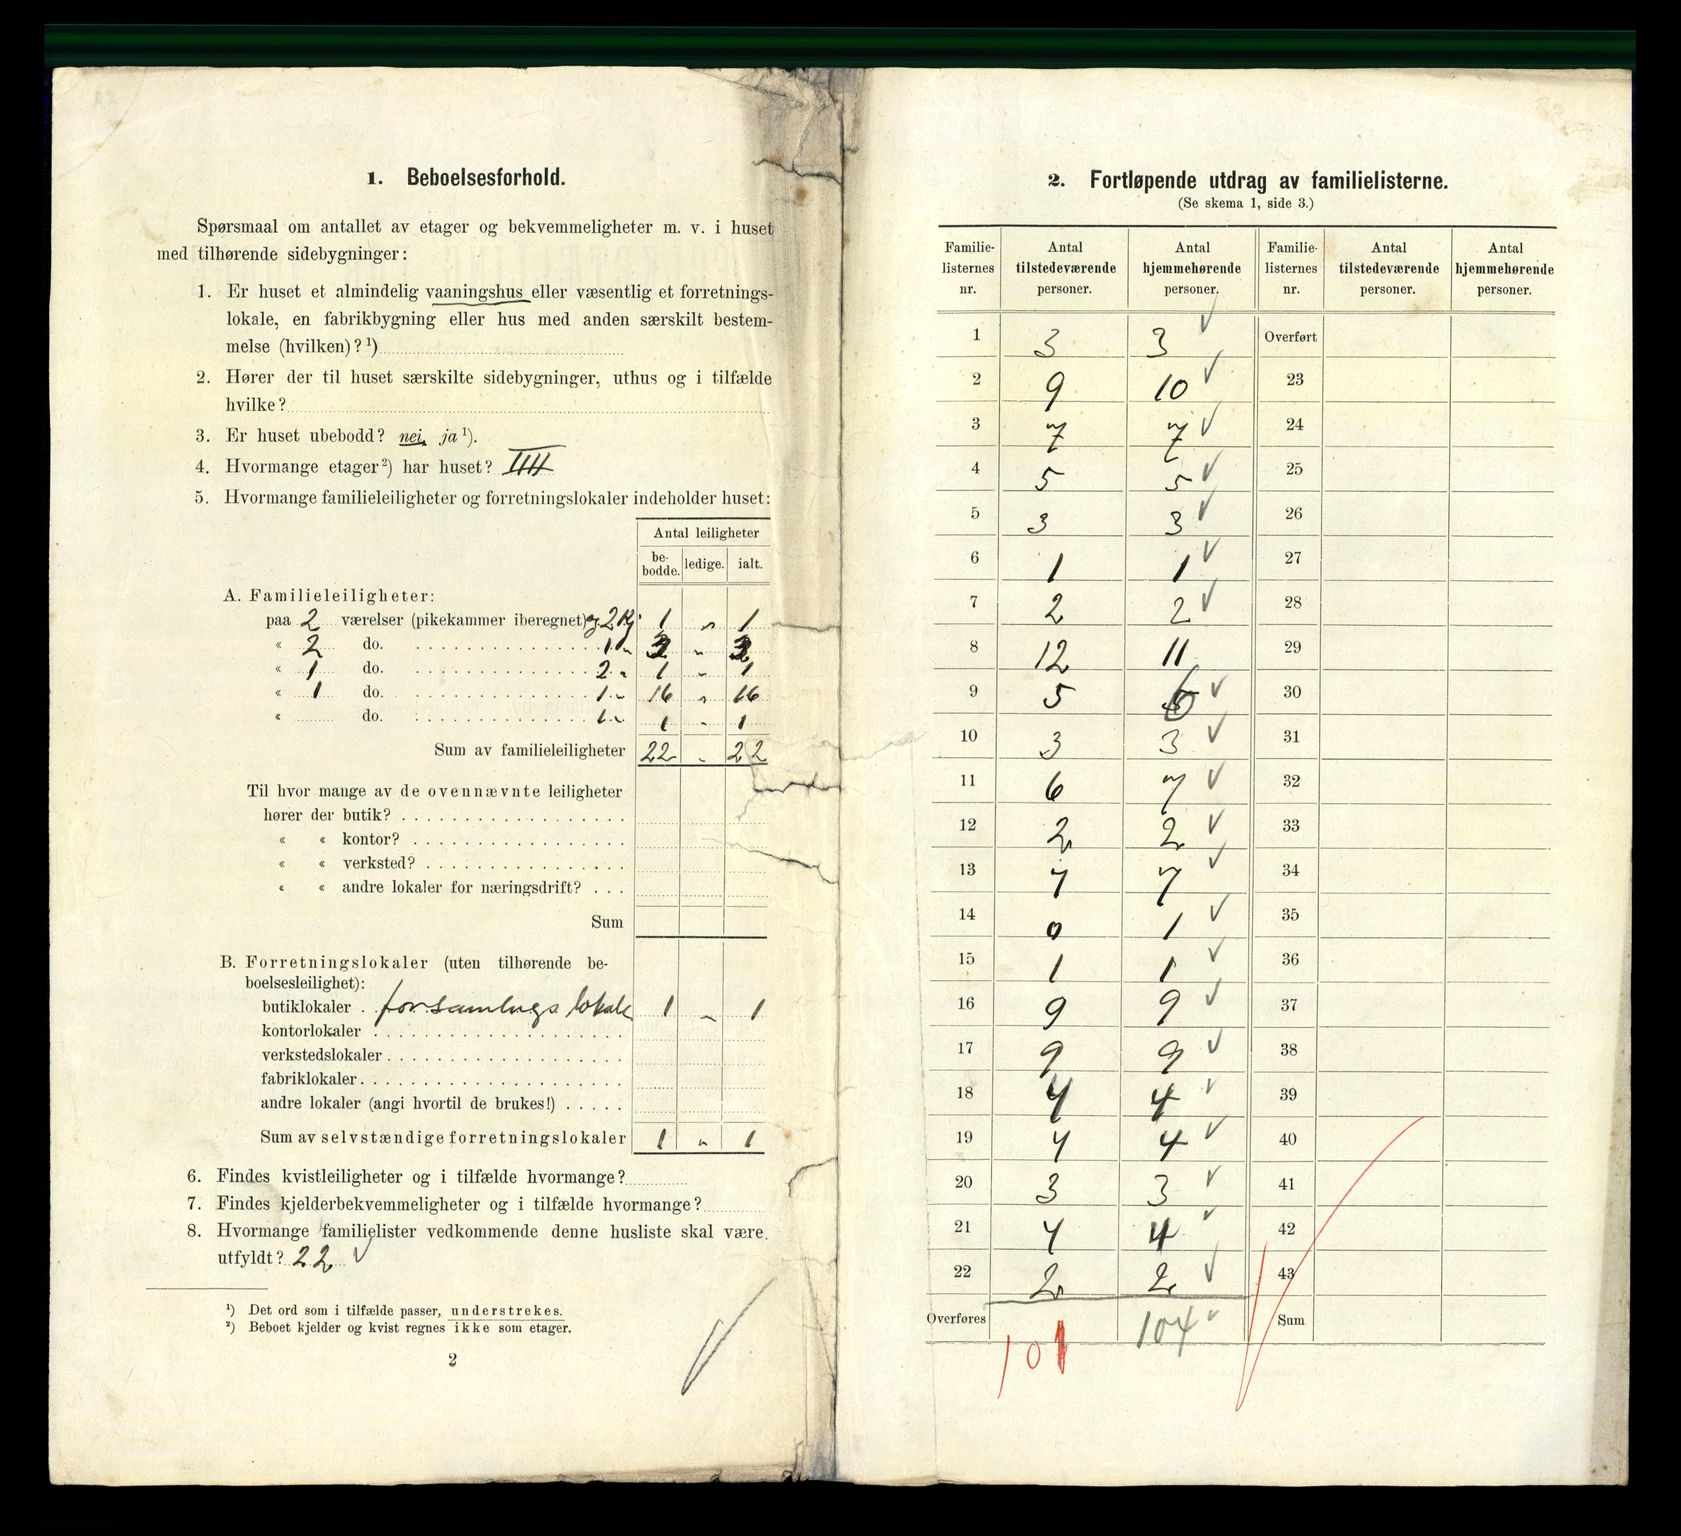 1. Beboelsesforhold.
Spørsmaal om antallet av etager og bekvemmeligheter m. v. i huset
med tilhørende sidebygninger:
1. Er huset et almindelig vaaningshus eller væsentlig et forretnings-
lokale, en fabrikbygning eller hus med anden særskilt bestem-
melse (hvilken)? ¹)
2. Hører der til huset særskilte sidebygninger, uthus og i tilfælde
hvilke?
3. Er huset ubebodd? nei, ja ¹).
4. Hvormange etager ²) har huset? IIII
5. Hvormange familieleiligheter og forretningslokaler indeholder huset:
Antal leiligheter
be-
bodde. ledige. ialt.
A. Familieleiligheter:
paa 2 værelser (pikekammer iberegnet) og 2 Kj. 1 „ 1
« 2 do. 1 „ 3 „ 3
« 1 do. 2 „ 1 „ 1
« 1 do. 1 „ 16 „ 16
« do. 1 „ 1 „ 1
Sum av familieleiligheter 22 „ 22
Til hvor mange av de ovennævnte leiligheter
hører der butik?
« « kontor?
« « verksted?
« « andre lokaler for næringsdrift?
Sum
B. Forretningslokaler (uten tilhørende be-
boelsesleilighet):
butiklokaler forsamlings lokale 1 „ 1
kontorlokaler
verkstedslokaler
fabriklokaler
andre lokaler (angi hvortil de brukes!)
Sum av selvstændige forretningslokaler 1 „ 1
6. Findes kvistleiligheter og i tilfælde hvormange?
7. Findes kjelderbekvemmeligheter og i tilfælde hvormange?
8. Hvormange familielister vedkommende denne husliste skal være
utfyldt? 22 ✓
¹) Det ord som i tilfælde passer, understrekes.
²) Beboet kjelder og kvist regnes ikke som etager.
2
2. Fortløpende utdrag av familielisterne.
(Se skema 1, side 3.)
Familie-
listernes
nr. Antal
tilstedeværende
personer. Antal
hjemmehørende
personer. Familie-
listernes
nr. Antal
tilstedeværende
personer. Antal
hjemmehørende
personer.
1 3 3 ✓ Overført
2 9 10 ✓ 23
3 7 7 ✓ 24
4 5 5 ✓ 25
5 3 3 ✓ 26
6 1 1 ✓ 27
7 2 2 ✓ 28
8 12 11 29
9 5 6 ✓ 30
10 3 3 ✓ 31
11 6 7 ✓ 32
12 2 2 ✓ 33
13 7 7 ✓ 34
14 0 1 ✓ 35
15 1 1 ✓ 36
16 9 9 ✓ 37
17 9 9 ✓ 38
18 4 4 ✓ 39
19 4 4 ✓ 40
20 3 3 ✓ 41
21 4 4 ✓ 42
22 2 2 ✓ 43
Overføres 101 104 ✓ Sum